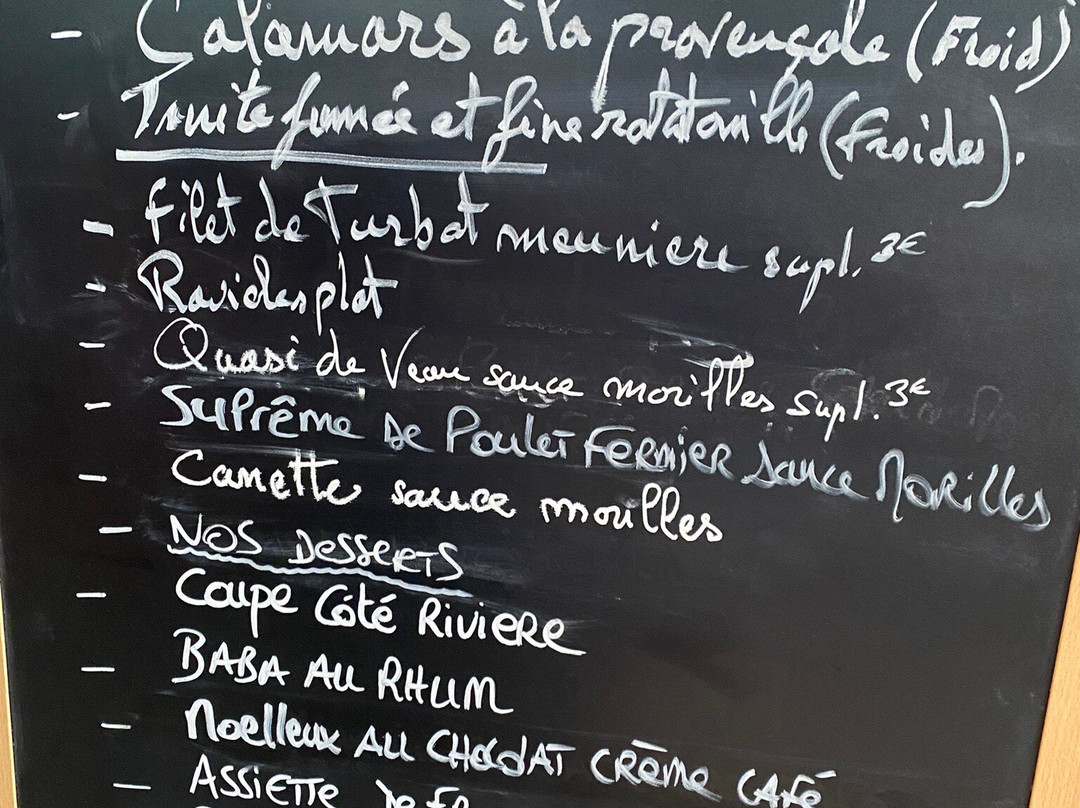 - Calamars à la provençale (Froid)
- Truite fumée et fine ratatouille (froides).
- Filet de Turbot meuniere supl. 3€
- Ravioles plat
- Quasi de Veau sauce morilles supl. 3€
- Suprême de Poulet Fermier sauce Morilles
- Canette sauce morilles
- NOS DESSERTS
- Coupe Côté RIVIERE
- BABA AU RHUM
- Moelleux AU CHOCOLAT CRÈME CAFÉ
- ASSIETTE De